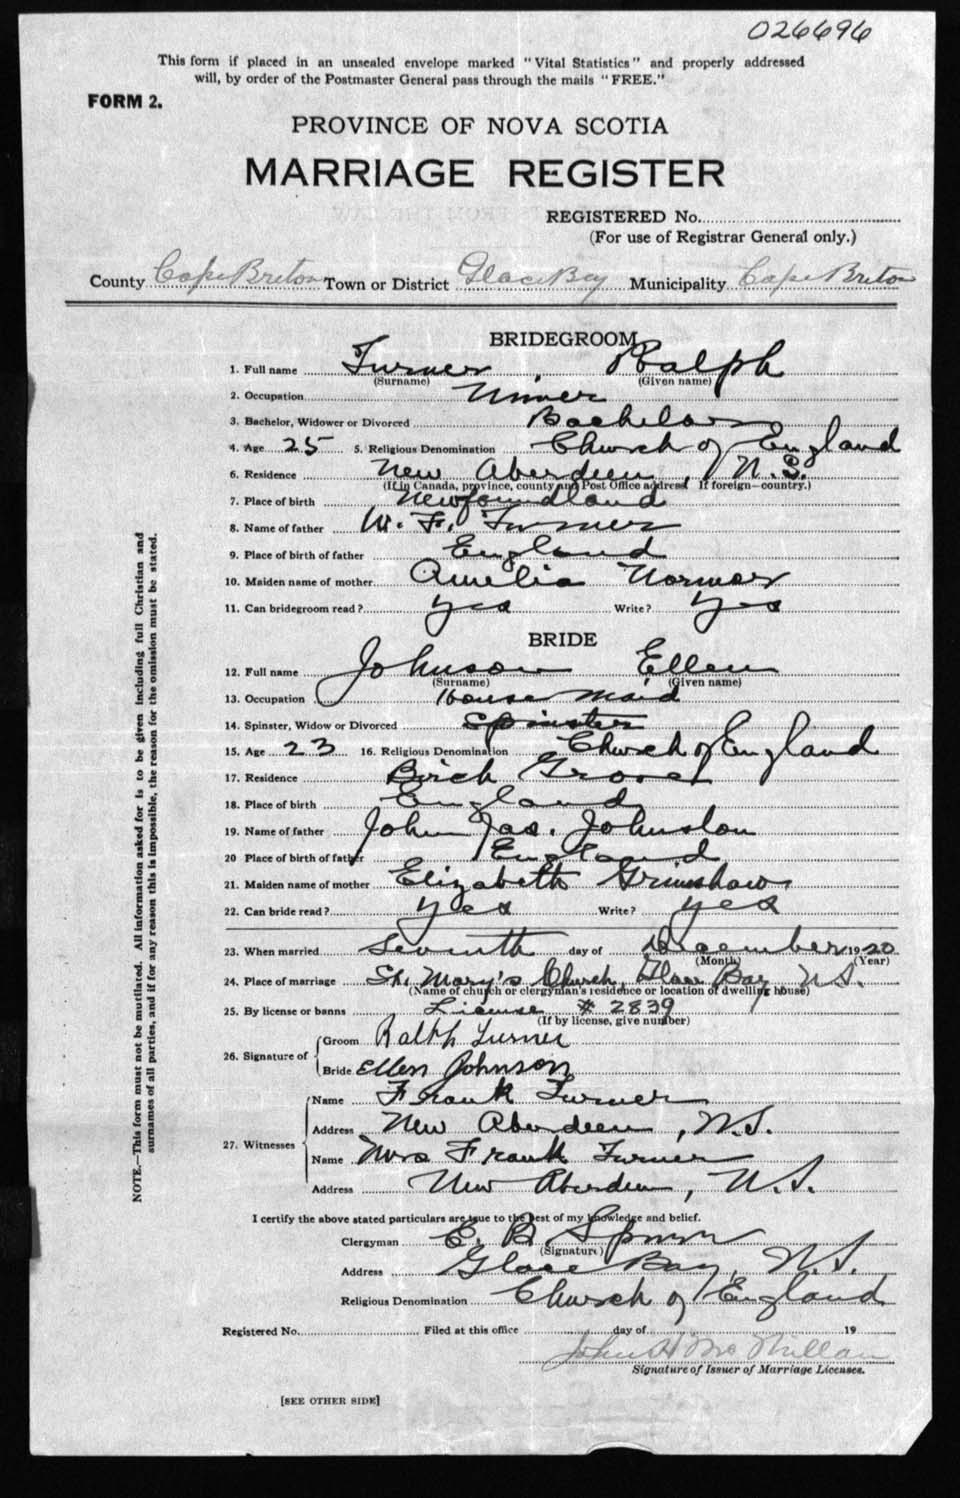 026696
This form if placed in an unsealed envelope marked "Vital Statistics" and properly addressed
will, by order of the Postmaster General pass through the mails "FREE."
FORM 2.
PROVINCE OF NOVA SCOTIA
MARRIAGE REGISTER
REGISTERED No.
(For use of Registrar General only.)
County Cape Breton Town or District Glace Bay Municipality Cape Breton
BRIDEGROOM
1. Full name Turner Ralph
(Surname) (Given name)
2. Occupation Miner
3. Bachelor, Widower or Divorced Bachelor
4. Age 25 5. Religious Denomination Church of England
6. Residence New Aberdeen, N.S.
(If in Canada, province, county and Post Office address If foreign—country.)
7. Place of birth Newfoundland
8. Name of father W. F. Turner
9. Place of birth of father England
10. Maiden name of mother Amelia Normor
11. Can bridegroom read? yes Write? yes
BRIDE
12. Full name Johnson Ellen
(Surname) (Given name)
13. Occupation House Maid
14. Spinster, Widow or Divorced Spinster
15. Age 23 16. Religious Denomination Church of England
17. Residence Birch Grove
18. Place of birth England
19. Name of father John Jas. Johnston
20 Place of birth of father England
21. Maiden name of mother Elizabeth Grimshaw
22. Can bride read? yes Write? yes
23. When married Seventh day of December 1920
(Month) (Year)
24. Place of marriage St. Mary's Church, Glace Bay N.S.
(Name of church or clergyman's residence or location of dwelling house)
25. By license or banns License # 2839
(If by license, give number)
26. Signature of
Groom Ralph Turner
Bride Ellen Johnson
27. Witnesses
Name Frank Turner
Address New Aberdeen, N.S.
Name Mrs Frank Turner
Address New Aberdeen, N.S.
I certify the above stated particulars are true to the best of my knowledge and belief.
Clergyman E. B. Spurr
(Signature)
Address Glace Bay, N.S.
Religious Denomination Church of England
Registered No. Filed at this office day of 19
John H McMillan
Signature of Issuer of Marriage Licenses.
[SEE OTHER SIDE]
NOTE.—This form must not be mutilated. All information asked for is to be given including full Christian and
surnames of all parties, and if for any reason this is impossible, the reason for the omission must be stated.